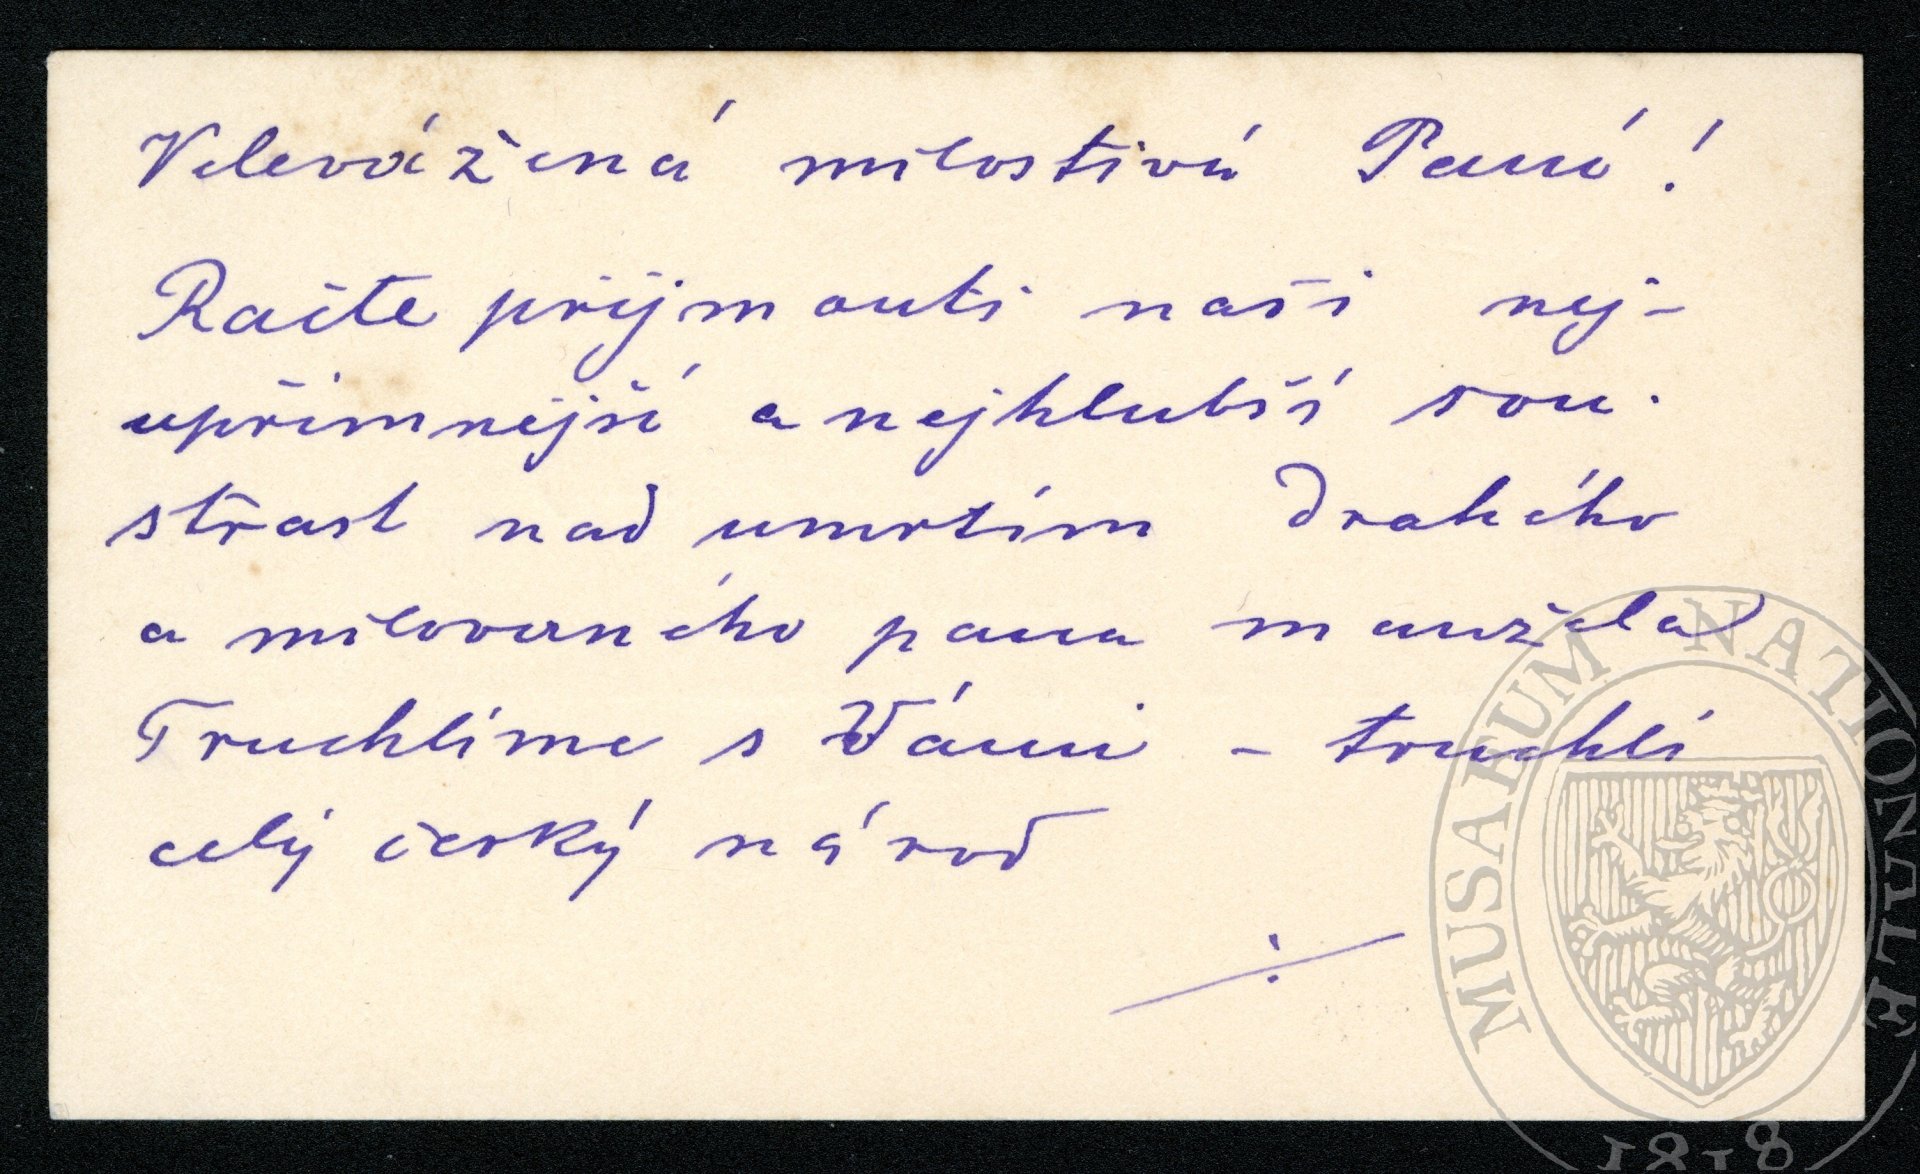 Velevážená milostivá Paní!
Račte přijmouti naši nej-
upřímnější a nejhlubší sou-
strast nad umrtím drahého
a milovaného pana manžela
Truchlíme s Vámi – truchlí
celý český národ
MUSAEUM NATIONALE
1818